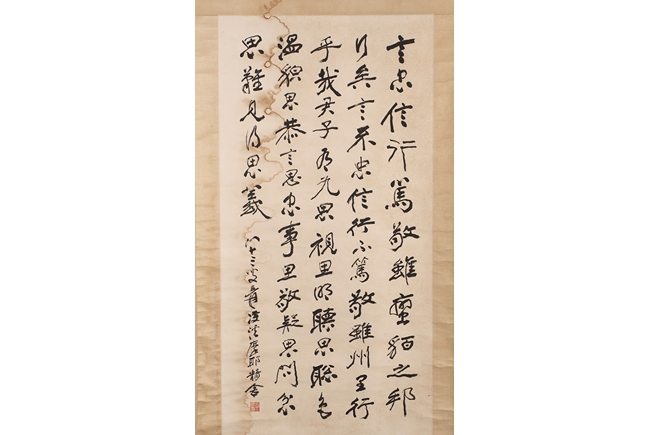 言忠信行篤敬雖蠻貊之邦
行矣言不忠信行不篤敬雖州里行
乎哉君子有九思視思明聽思聰色
溫貌思恭言思忠事思敬疑思問忿
思難見得思義 八十三叟爰 摩耶精舍